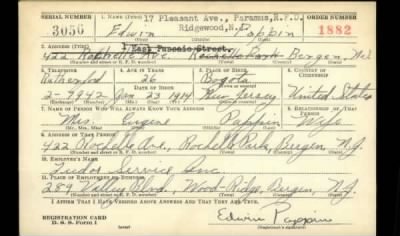 SERIAL NUMBER 1. NAME (Print) ORDER NUMBER
17 Pleasant Ave., Paramus, R.F.D.
Ridgewood, N.J.
3056 Edwin Pappin 1882
2. ADDRESS (Print)
1 East Passaic Street,
422 Rochelle Ave. Rochelle Park Bergen, N.J.
3. TELEPHONE 4. AGE IN YEARS 5. PLACE OF BIRTH 6. COUNTRY OF CITIZENSHIP
Rutherford 26 Bogota
DATE OF BIRTH
2-7942 Nov 23 1914 New Jersey United States
7. NAME OF PERSON WHO WILL ALWAYS KNOW YOUR ADDRESS 8. RELATIONSHIP OF THAT PERSON
Mrs. Eugene Pappin Wife
9. ADDRESS OF THAT PERSON
422 Rochelle Ave., Rochelle Park, Bergen, N.J.
10. EMPLOYER'S NAME
Tudor Service Inc.
11. PLACE OF EMPLOYMENT OR BUSINESS
289 Valley Blvd., Wood-Ridge, Bergen, N.J.
I AFFIRM THAT I HAVE VERIFIED ABOVE ANSWERS AND THAT THEY ARE TRUE.
REGISTRATION CARD
D. S. S. Form 1
Edwin Pappin
(Registrant's signature)